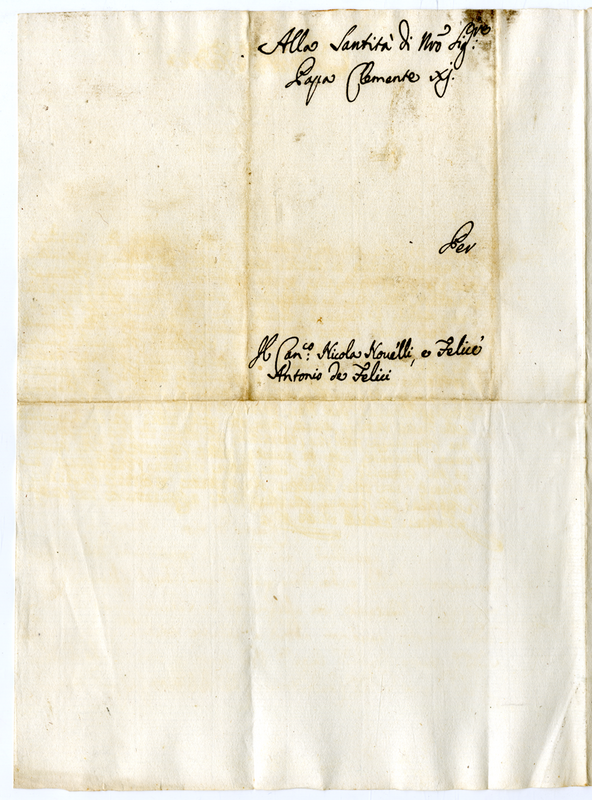 Alla Santità di Nrõ Sig:re
Papa Clemente xj.
Per
Il Can:co Nicola Nouelli, e Felice
Antonio de Felici